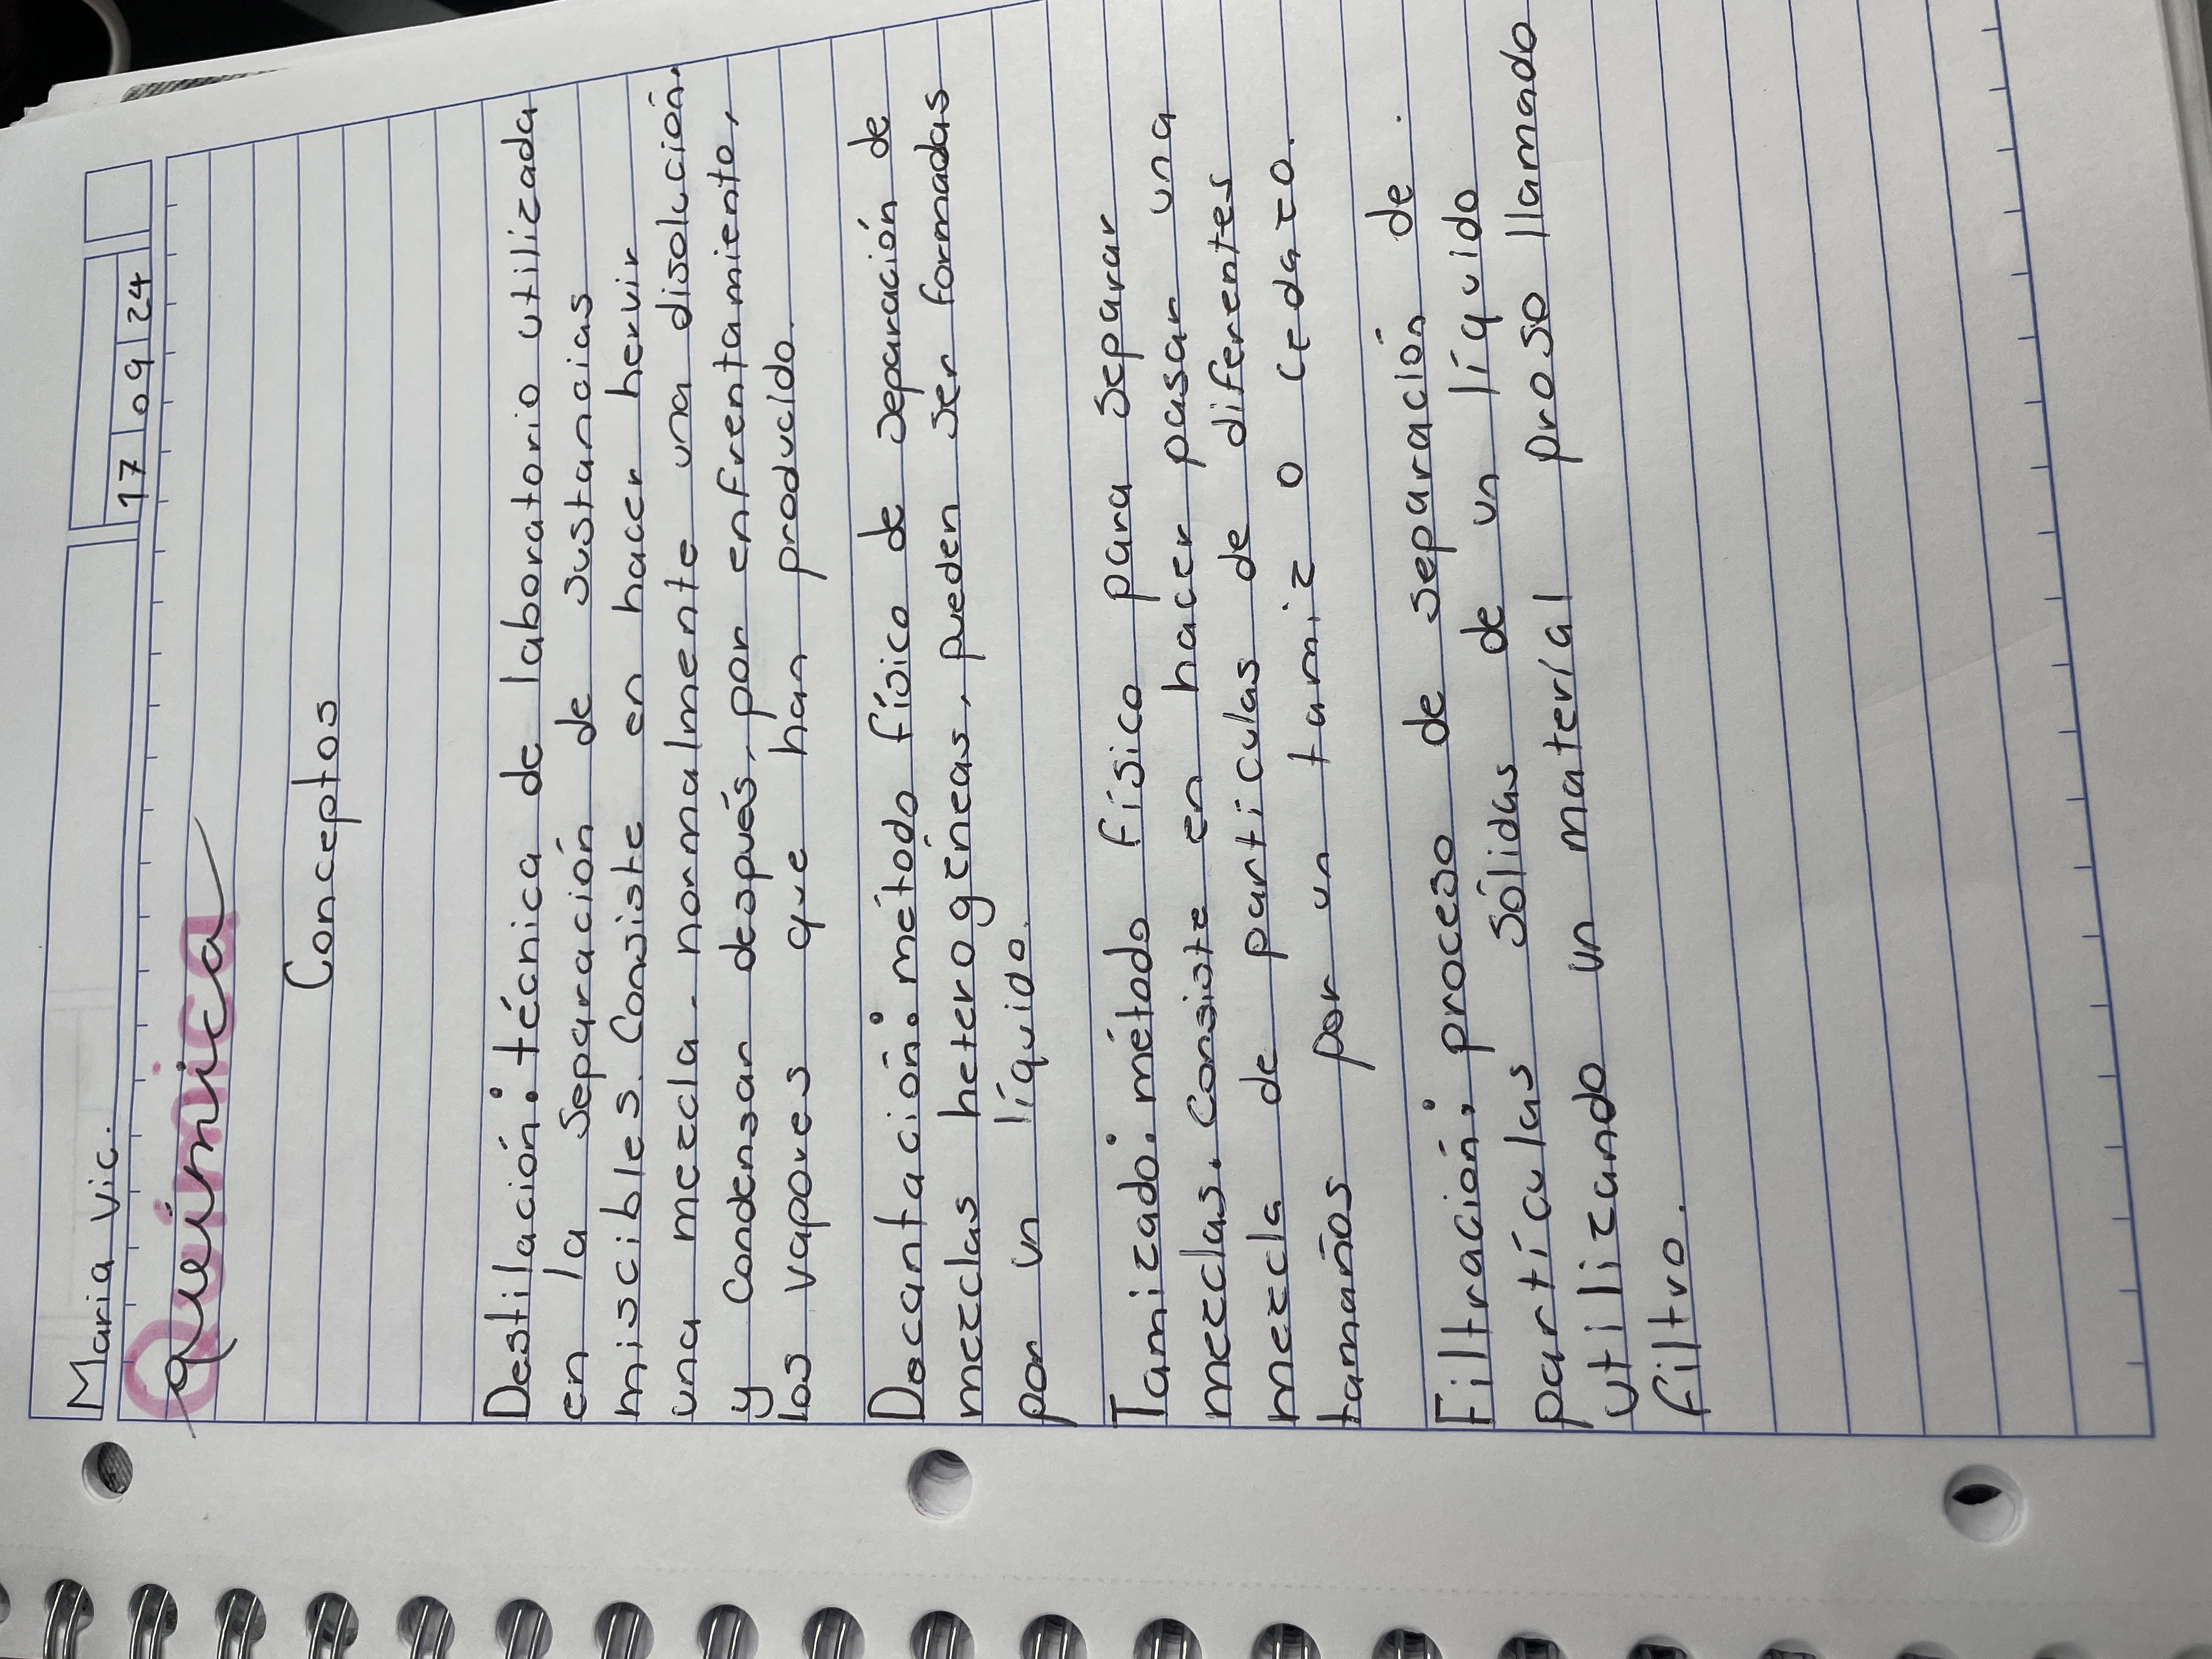 Maria Vic.
17 09 24
Química
Conceptos
Destilación: técnica de laboratorio utilizada
en la separación de sustancias
miscibles. Consiste en hacer hervir
una mezcla, normalmente una disolución,
y condensar después, por enfrentamiento,
los vapores que han producido.
Decantación: método físico de separación de
mezclas heterogéneas, pueden ser formadas
por un líquido.
Tamizado: método físico para separar
mezclas. Consiste en hacer pasar una
mezcla de partículas de diferentes
tamaños por un tamiz o cedazo.
Filtración: proceso de separación de.
partículas sólidas de un líquido
utilizando un material proso llamado
filtro.